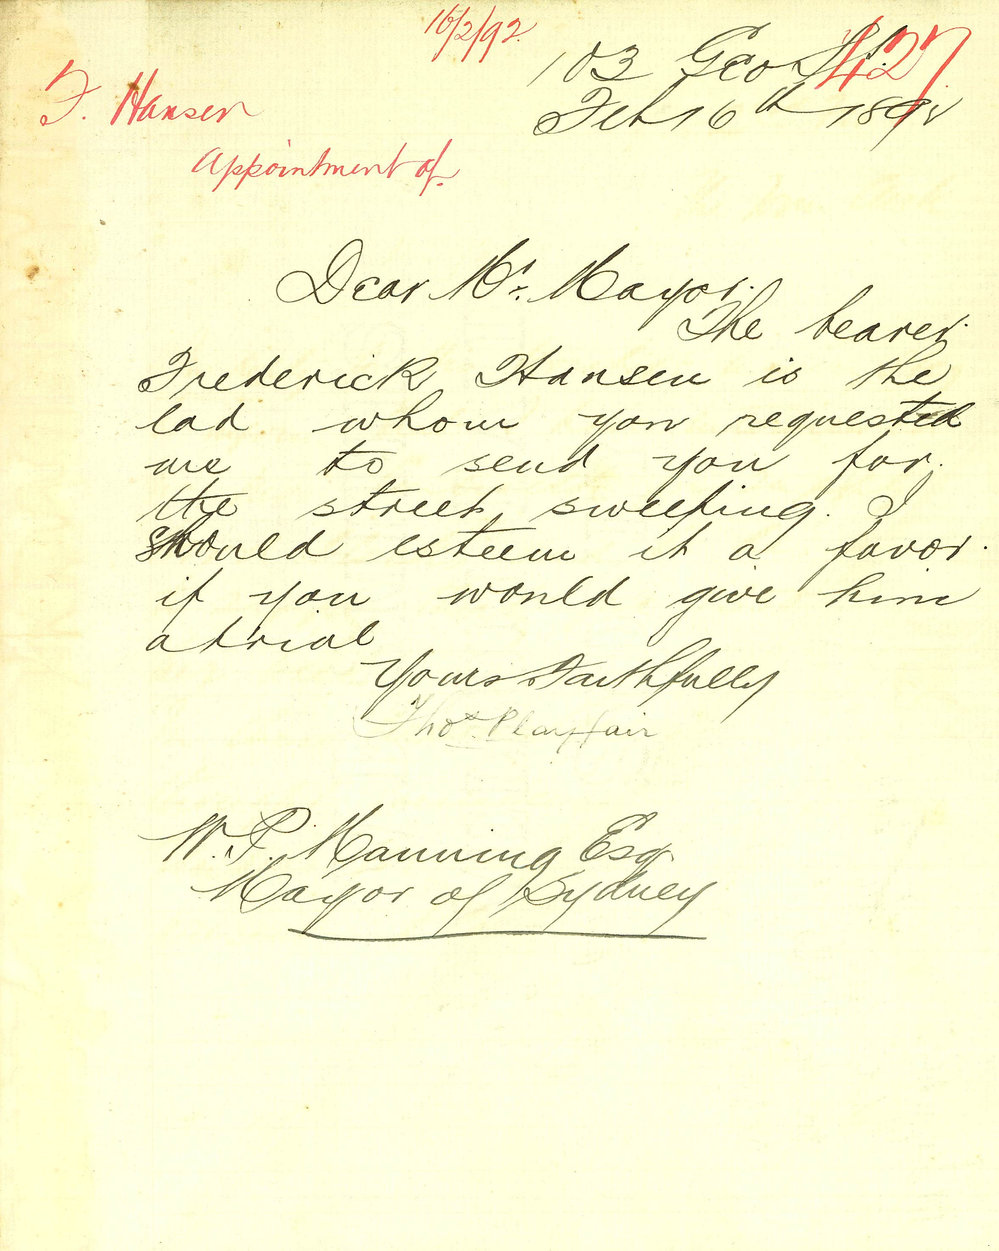 16/2/92
427
F. Hansen
Appointment of.
103 Geo St.
Feb 16th 1892
Dear Mr. Mayor.
The bearer.
Frederick Hansen is the
lad whom you requested
me to send you for.
the street sweeping. I
should esteem it a favor.
if you would give him
a trial
Yours Faithfully
Thos Playfair
W. P. Manning Esq
Mayor of Sydney